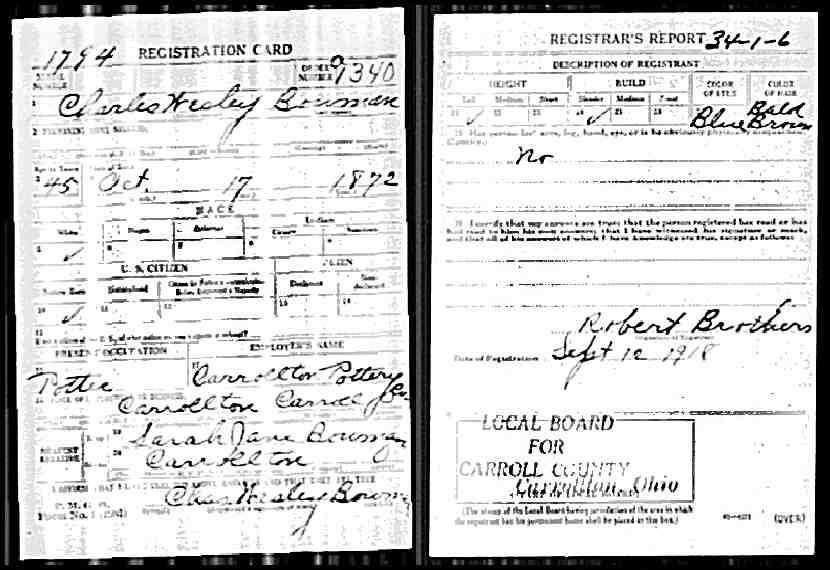 1794 REGISTRATION CARD
SERIAL NUMBER
ORDER NUMBER 1340
1 Charles Wesley Bowman
2 PERMANENT HOME ADDRESS:
Age in Years Date of Birth
3 45 Oct. 17 1872
RACE
White Negro Oriental Indian
Citizen Noncitizen
5 ✓ 6 7 8 9
U. S. CITIZEN ALIEN
Native Born Naturalized Citizen by Father's Naturalization Before Registrant's Majority Declarant Non-declarant
10 ✓ 11 12 13 14
15
PRESENT OCCUPATION EMPLOYER'S NAME
Potter Carrollton Pottery Co.
Carrollton Carroll
NEAREST RELATIVE
19 Sarah Jane Bowman
20 Carrollton
Chas Wesley Bowman
P. M. G. O.
Form No. 1
REGISTRAR'S REPORT 34-1-6
DESCRIPTION OF REGISTRANT
HEIGHT BUILD COLOR OF EYES COLOR OF HAIR
Tall Medium Short Slender Medium Stout
21 ✓ 22 23 24 ✓ 25 26 Blue Bald Brown
29 Has person lost arm, leg, hand, eye, or is he obviously physically disqualified?
(Specify.)
No
30 I certify that my answers are true; that the person registered has read or has
had read to him his own answers; that I have witnessed his signature or mark,
and that all of his answers of which I have knowledge are true, except as follows:
Robert Brothers
Signature of Registrar
Date of Registration Sept 12 1918
LOCAL BOARD
FOR
CARROLL COUNTY
Carrollton, Ohio
(The stamp of the Local Board having jurisdiction of the area in which
the registrant has his permanent home shall be placed in this box.)
(OVER)